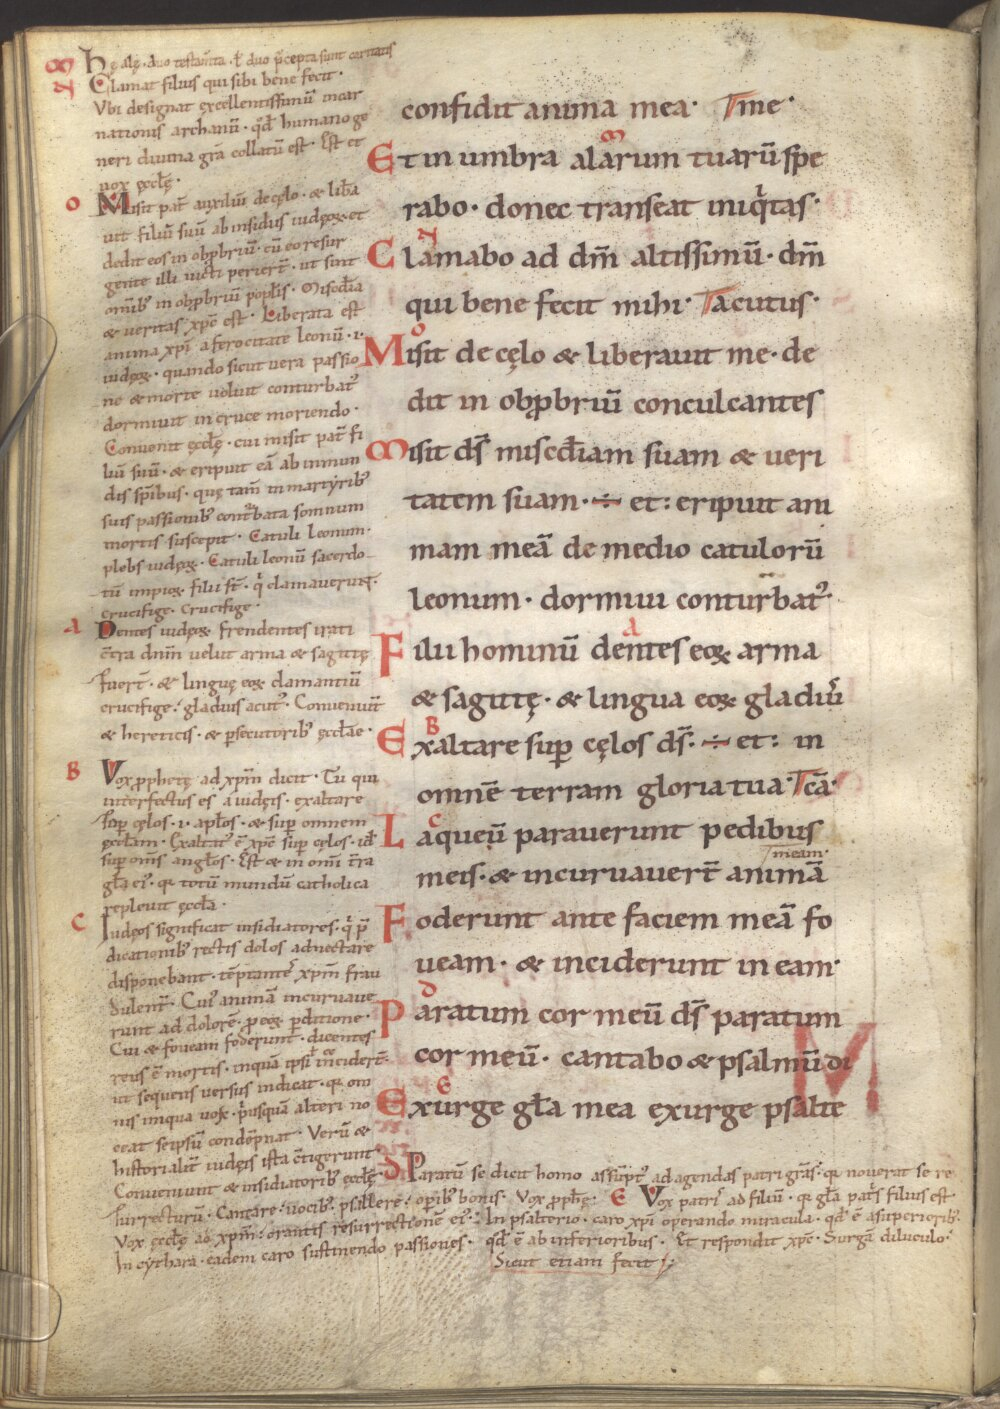 hę alę · duo testam̄ta · ł duo p̄cepta sunt caritatis
Clamat filius qui sibi bene fecit ·
Vbi designat excellentissimū incar
nationis archanū · qd̄ humano ge
neri diuina gr̄a collatū est · Est et
uox ęccl̄ę ·
Misit pat̄ auxiliū de cęlo · & lib̄a
uit filiū suū ab insidiis iudęoꝝ et
dedit eos in obp̄briū · cū eo resur
gente illi uicti perierūt · ut sint
omīb; in obp̄briū popl̄is · Misedīa
& ueritas xp̄c est · Liberata est
anima xp̄i a ferocitate leonū · i ·
iudęoꝝ · quando sicut uera passio
ne & morte uoluit conturbat᷒
dormiuit in cruce moriendo ·
Conuenit ęccl̄ę · cui misit pat̄ fi
liū suū · & eripuit eā ab inmun
dis sp̄ib; · quę tam̄ in martyrib;
suis passionib; contʳbata somnum
mortis suscepit · Catuli leonum ·
plebs iudęoꝝ · Catuli leonū sacerdo
tū impioꝝ filii st̄ · qⁱ clamauerunt ·
crucifige · crucifige ·
Dentes iudęoꝝ frendentes irati
c̄tra dn̄m uelut arma & sagittę
fuert̄ · & linguę eoꝝ clamantiū
crucifige · gladius acut᷒ · Conueniunt̄
& hereticis · & p̲secutorib; ęccl̄ae ·
Vox p̄phetę ad xp̄m dicit · Tu qui
interfectus es a iudęis · exaltare
sup̲ cęlos · i · apl̄os · & sup̲ omnem
ęccl̄am · Exaltat᷒ ē xp̄c sup̲ cęlos · id̄
sup̲ om̄s angl̄os · Est & in omī t̄ra
gl̄a ei᷒ · qꝛ totū mundū catholica
repleuit ęccl̄a ·
Iudęos significat insidiatores · qⁱ p̄
dicationib; rectis dolos adnectare
disponebant · tēptantes xp̄m frau
dulent̄ · Cui᷒ animā incuruaue
runt ad dolorē · p̄ eoꝝ p̲ditione ·
Cui & foueam foderunt · dicentes
reus ē mortis · inquā ipsi inciderūt ·
ut sequens uersus indicat · qꝛ om
nis iniqua uox · pⁱusquā alteri no
ceat seipsū condēpnat · Verū &
historialit̄ iudęis ista c̄tigerunt
Conueniunt & insidiatorib; ęccl̄ę ·
confidit anima mea · Tme ·
Et in umbra alarum tuarū spe
rabo · donec transeat iniqⁱtas ·
Clamabo ad dm̄ altissimū · dm̄
qui bene fecit mihi · Tacutus ·
Misit de cęlo & liberauit me · de
dit in obp̄briū conculcantes
Misit ds̄ misedīam suam & ueri
tatem suam · ÷ et : eripuit ani
mam meā de medio catulorū
leonum · dormiui conturbat᷒ ·
Filii hominū dentes eoꝝ arma
& sagittę · & lingua eoꝝ gladiu᷒
Exaltare sup̲ cęlos ds̄ · ÷ et : in
omnē terram gloria tua · Tcā ·
Laqueū parauerunt pedibus
meis · & incuruauert̄ animā
meam ·
Foderunt ante faciem meā fo
ueam · & inciderunt in eam ·
Paratum cor meū ds̄ paratum
cor meū · cantabo & psalmū di
Exurge gl̄a mea exurge psalte
Paratū se dicit homo assūpt᷒ ad agendas patri grās · qꝛ nouerat se re
surrecturū · Cantare · uocib; · psallere · op̲ib; bonis · Vox p̄ph̄ę · E Vox patris ad filiū · qꝛ gl̄a pat̄s filius est ·
Vox ęccl̄ę ad xp̄m · orantis resurrectionē ei᷒ · In psalterio · caro xp̄i operando miracula · qd̄ ē a superiorib; ·
In cythara · eadem caro sustinendo passiones · qd̄ ē ab inferioribus · Et respondit xp̄c · Surgā diluculo ·
Sicut etiam fecit ;